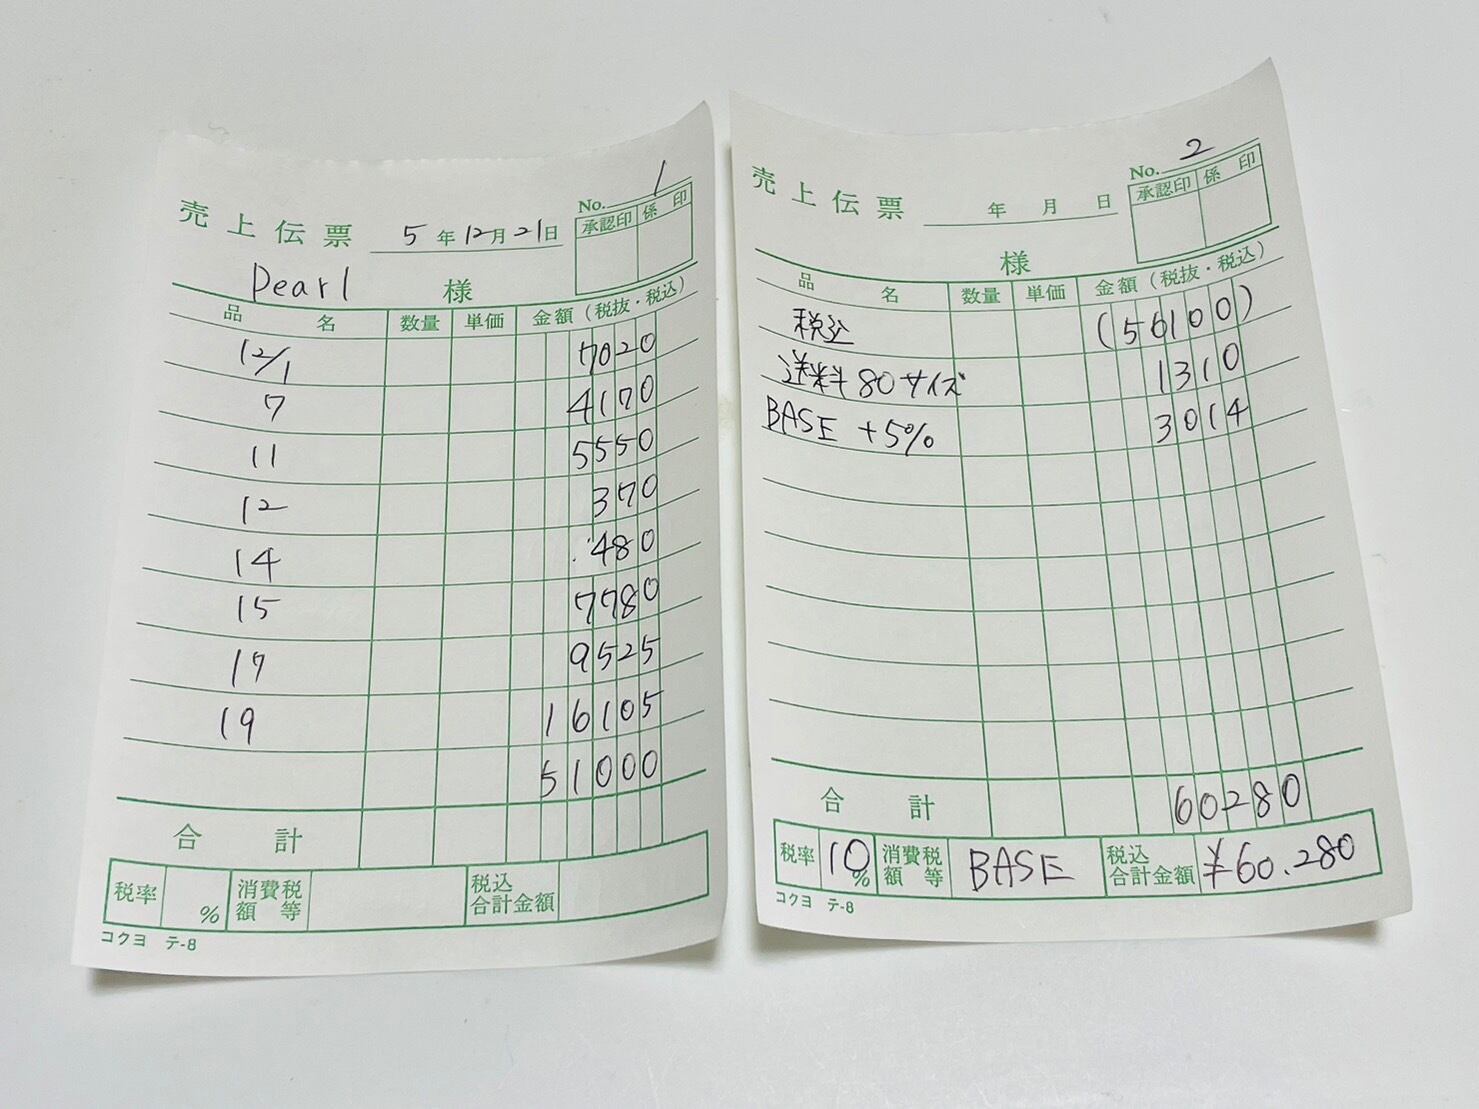 No. 1
売上伝票 5年12月21日
承認印 係印
Pearl 様
品名 数量 単価 金額（税抜・税込）
12/1 7020
7 4170
11 5550
12 370
14 480
15 7780
17 9525
19 16105
51000
合計
税率 % 消費税額等 税込合計金額
コクヨ テ-8
No. 2
売上伝票 年 月 日
承認印 係印
様
品名 数量 単価 金額（税抜・税込）
税込 (56100)
送料80サイズ 1310
BASE +5% 3014
合計 60280
税率 10% 消費税額等 BASE 税込合計金額 ¥60.280
コクヨ テ-8